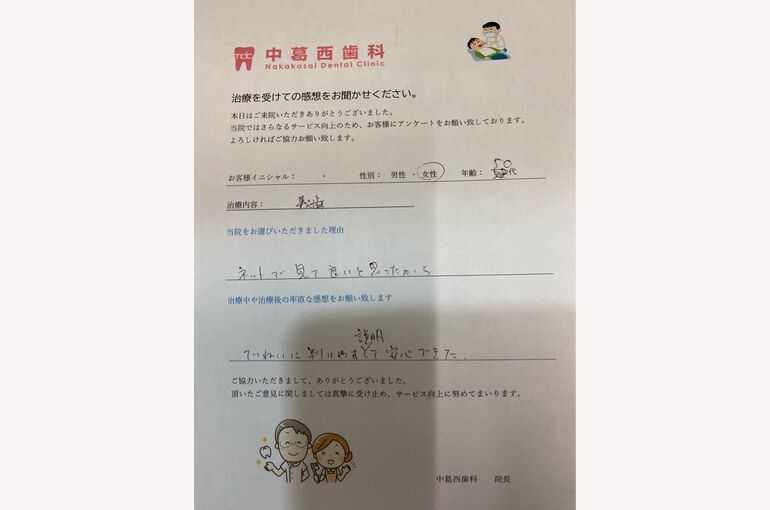 中葛西歯科
Nakakasai Dental Clinic
治療を受けての感想をお聞かせください。
本日はご来院いただきありがとうございました。
当院ではさらなるサービス向上のため、お客様にアンケートをお願い致しております。
よろしければご協力お願い致します。
お客様イニシャル： ・ 性別： 男性 ・ 女性 年齢： 50代
治療内容：
当院をお選びいただきました理由
ネットで見て良いと思ったから
治療中や治療後の率直な感想をお願い致します
説明
ていねいに判りやすくて安心できた。
ご協力いただきまして、ありがとうございました。
頂いたご意見に関しましては真摯に受け止め、サービス向上に努めてまいります。
中葛西歯科 院長